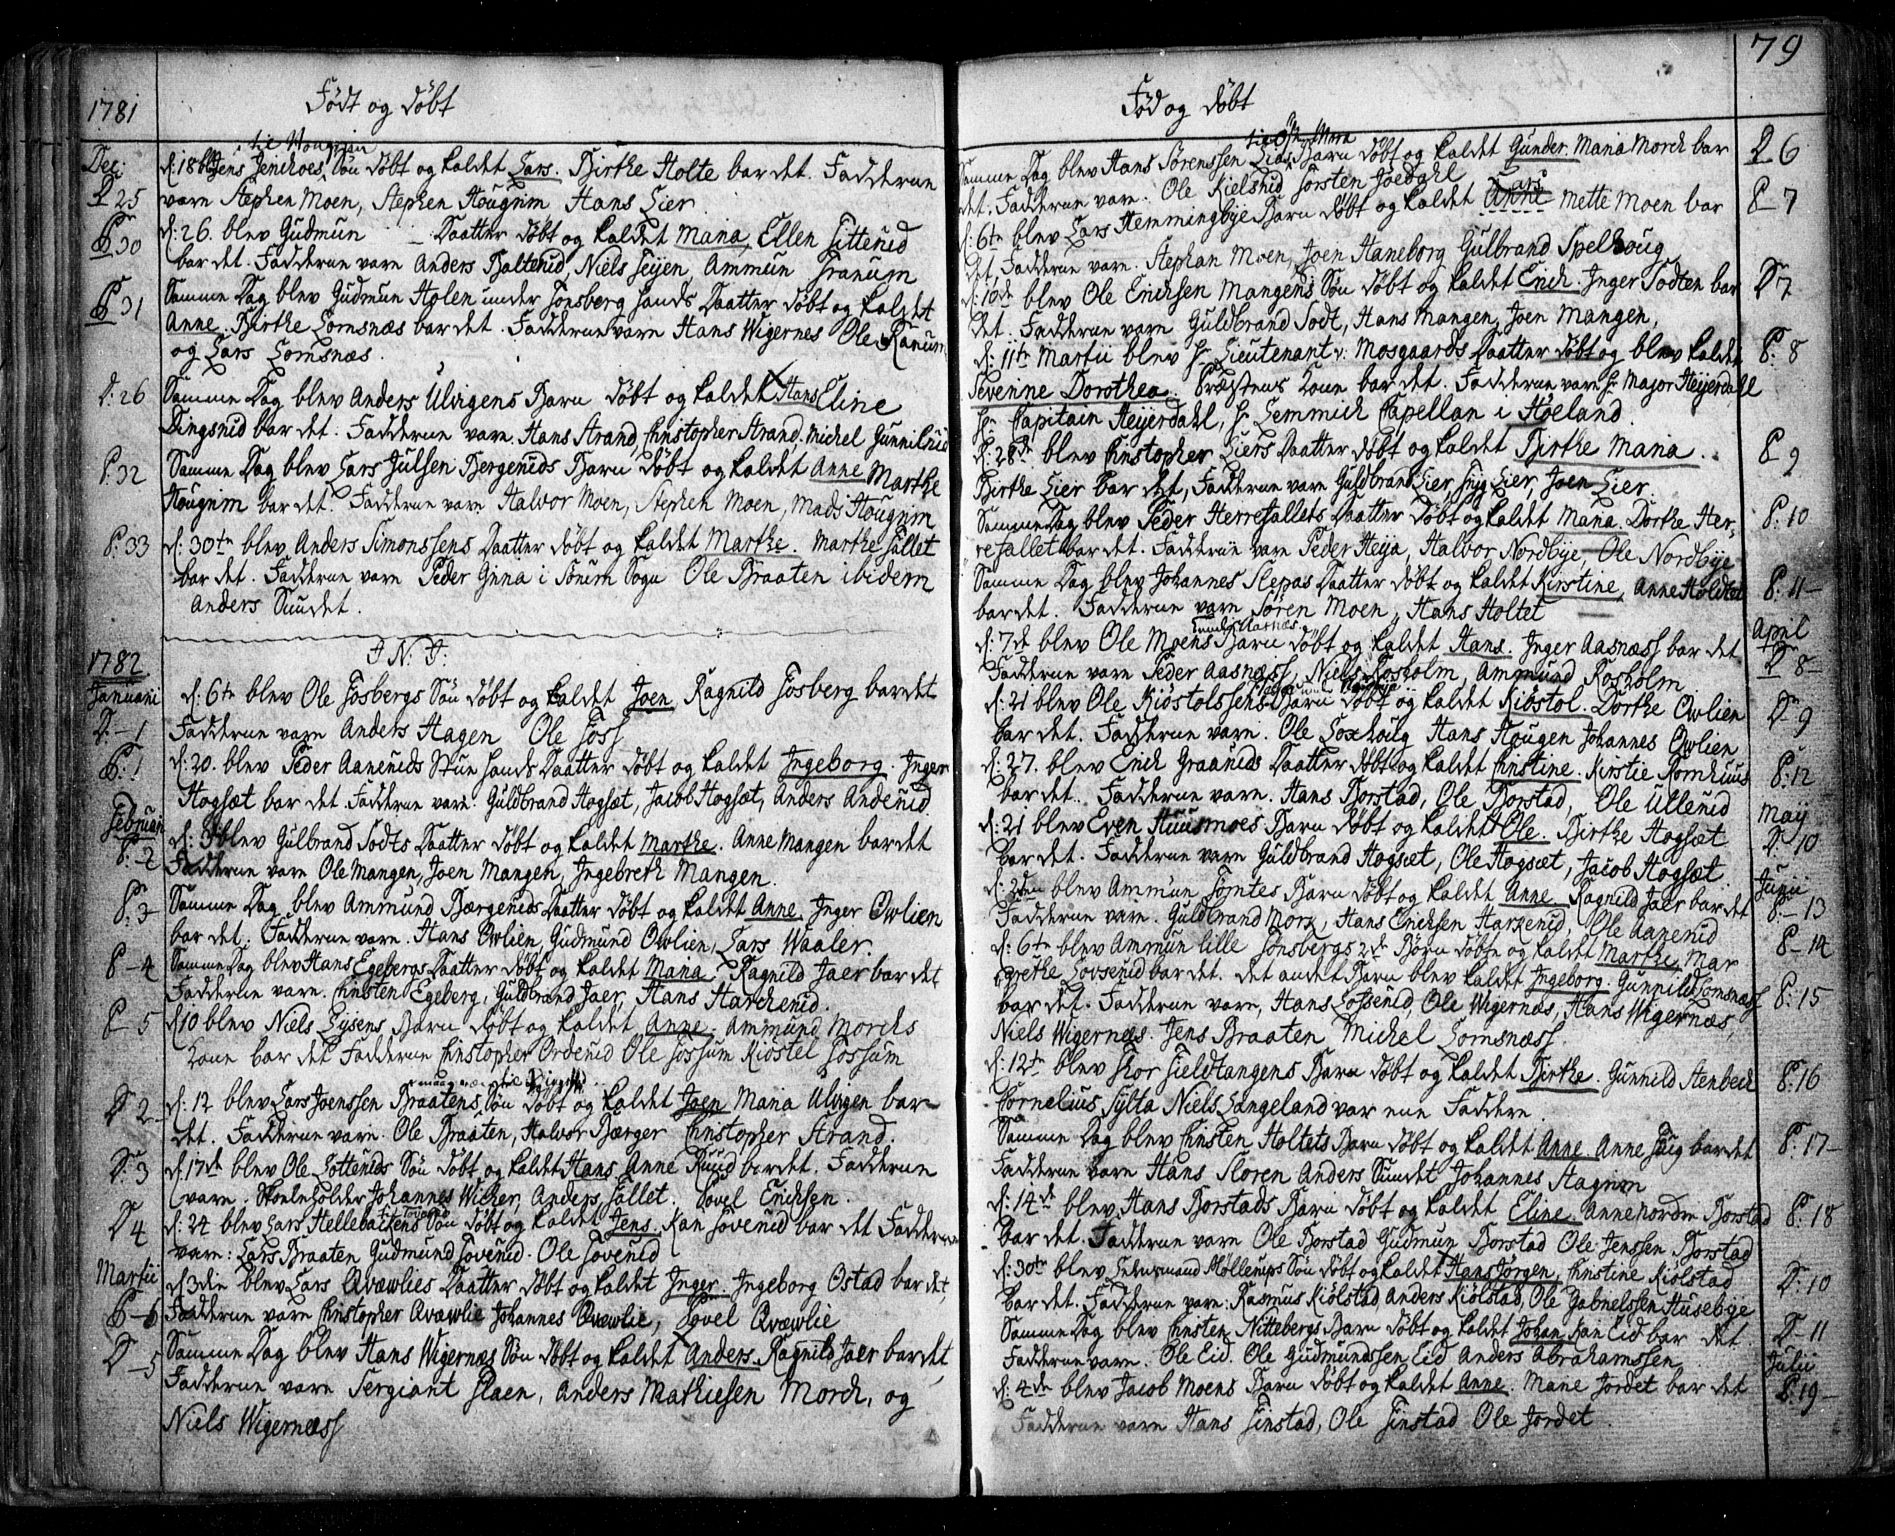 1781
Født og døbt
Dec:
til Hougrim
d: 18 blev Jens Jenshoes Søn døbt og kaldet Lars. Birthe Holte bar det. Fadderne
D 25
varn Stephen Moen, Stephen Hougrim Hans Lier.
P 30
d: 26. blev Gudmun Daatter døbt og kaldet Maria, Ellen Sittenid
bar det. Fadderne varn Anders Baltenid, Niels Teijen, Ammun Granum
P 31
Samme Dag blev Gudmun Holen under Tonsberg Lands Daatter døbt og kaldet
Anne. Birthe Lomsnæs bar det. Fadderne varn Hans Wigernes Ole Ranum
og Lars Lomsnæs.
D: 26
Samme Dag blev Anders Ulvigens Barn døbt og kaldet Hans Eline
Dingsnid bar det. Fadderne varn. Hans Strand, Christopher Strand. Michel Gunnilsnid
P: 32
Samme Dag blev Lars Julsen Bergenids Barn døbt og kaldet Anne Marthe
Hougrim bar det. Fadderne varn Halvor Moen, Stephen Moen, Mads Hougrim
P: 33
d: 30te blev Anders Simonssens Daatter døbt og kaldet Marthe. Marthe Fallet
bar det. Fadderne varn Peder Gina i Sørum Sogn Ole Braaten ibidem
Anders Sundet.
1782
J: N: J:
Januarii
d: 6te blev Ole Fosbergs Søn døbt og kaldet Joen. Ragnild Fosberg bar det
D: - 1
Fadderne varn Anders Hagen Ole Foss
P: 1
d: 20. blev Peder Aanenids Stue Lands Daatter døbt og kaldet Ingeborg. Inger
Hogsæt bar det. Fadderne varn. Guldbrand Hogsæt, Jacob Hogsæt, Anders Andenid
Februari
d: 3 blev Gulbrand Todts Daatter døbt og kaldet Marthe. Anne Mangen bar det
P: - 2
Fadderne varn Ole Mangen, Joen Mangen, Ingebreth Mangen.
P: 3
Samme Dag blev Ammund Bærgenids Daatter døbt og kaldet Anne. Inger Owlien
bar det. Fadderne varn. Hans Owlien, Gudmund Owlien, Lars Waaler.
P - 4
Samme Dag blev Hans Egebergs Daatter døbt og kaldet Maria. Ragnild Jaer bar det
Fadderne varn. Christen Egeberg, Guldbrand Jaer, Hans Harchenid.
P - 5
d 10 blev Niels Lysens Barn døbt og kaldet Anne. Ammund Morchs
Kone bar det Fadderne Christopher Ordenid Ole Fossum Kiøstel Fossum
D 2
d: 12 blev Lars Joenssen Braatens Søn døbt og kaldet Joen Maria Ulvigen bar
det. Fadderne varn. Ole Braaten, Halvor Bærger Christopher Strand.
D: 3
d: 17de blev Ole Lottenids Søn døbt og kaldet Hans Anne Ruud bar det. Fadderne
varn. Skoleholder Johannes Wicher, Anders Fallet. Povel Erichsen.
D 4
d: 24 blev Lars Hellebækens Søn døbt og kaldet Jens. Kari Tovenid bar det Fadderne
varn: Lars Braaten Gudmund Tovenid. Ole Tovenid
Martii
d 3die blev Lars Qvæwlies Daatter døbt og kaldet Inger Ingeborg Ostad bar det
P - 6
Fadderne varn Christopher Qvæwlie Johannes Qvæwlie, Povel Qvæwlie
D - 5
Samme Dag blev Hans Wigernæs Søn døbt og kaldet Anders. Ragnild Jaer bar det,
Fadderne varn Sergiant Slaen, Anders Mathiesen Morch, og
Niels Wigernæss
79
Fød og døbt
D 6
Samme Dag blev Hans Sørenssen Barn døbt og kaldet Gunder. Maria Morch bar
det. Fadderne varn. Ole Kielsnid Torsten Joedahl
Lars
P - 7
d: 6te blev Lars Hemmingbye Barn døbt og kaldet Anne Mette Moen bar
det, Fadderne varn. Stephan Moen, Joen Haneborg Gulbrand Spelhoug
D 7
d: 10de blev Ole Erichsen Mangens Søn døbt og kaldet Erich. Inger Todten bar
det. Fadderne varn Guldbrand Todt, Hans Mangen, Joen Mangen,
P: 8
d: 11te Martii blev Hr Lieutenant v: Mosgaards Daatter døbt og blev kaldet
Severine Dorothea. Præstens Kone bar det. Fadderne varn Hr Major Heijerdahl
Hr Capitain Heijerdahl, Hr Lemmich Capellan i Høeland.
P 9
d: 28de blev Christopher Liers Daatter døbt og kaldet Birthe Maria.
Birthe Lier bar det, Fadderne varn Guldbrand Lier Lier, Joen Lier.
P: 10
Samme Dag blev Peder Herrefallets Daatter døbt og kaldet Maria. Dorthe Her-
refallet bar det. Fadderne varn Peder Heija, Halvor Nordbije, Ole Nordbije
P: 11 -
Samme Dag blev Johannes Slepas Daatter døbt og kaldet Kirstine, Anne Holdtet
bar det. Fadderne varn Søren Moen, Hans Holtet
April
under Aasnæs
D 8
d: 7de blev Ole Moens Barn døbt og kaldet Hans. Inger Aasnæss bar det
Fadderne varn Peder Aasnæss, Niels Rosholm, Ammund Rosholm
D 9
d: 21 blev Ole Kiøstolssens Barn døbt og kaldet Kiøstol. Dorthe Owlien
bar det. Fadderne varn. Ole Foxhoug Hans Hougen Johannes Owlien
P: 12
d: 27. blev Erich Graanids Daatter døbt og kaldet Christine. Kirstie Romhuus
bar det. Fadderne varn. Hans Borstad, Ole Borstad, Ole Ullenid
May
D: 10
d: 21 blev Even Huusmoes Barn døbt og kaldet Ole. Birthe Hogsæt
bar det. Fadderne varn Guldbrand Hogsæt, Ole Hogsæt, Jacob Hogsæt
Junii
P: - 13
d: 2den blev Ammun Tomtes Barn døbt og kaldet Anne. Ragnild Jaer bar det
Fadderne varn. Guldbrand Mork, Hans Erichsen Harkenid, Ole Aanenid
P - 14
d: 6te blev Ammun lille Tonsbergs 2de Børn døbte og kaldet Marthe, Mar
grethe Lovsenid bar det. det andet Barn blev kaldet Ingeborg. Gunnild Lomsnæss
P: 15
bar det. Fadderne varn, Hans Lofsenid, Ole Wigernæs, Hans Wigernæs,
Niels Wigernæs. Jens Braaten Michel Lomsnæss.
P: 16
d: 12te blev Thor Fieldtangens Barn døbt og kaldet Birthe. Gunnild Stenbech
Cornelius Sylta Niels Langeland var ene Faddere.
P: 17 -
Samme Dag blev Christen Holtets Barn døbt og kaldet Anne. Anne Haug bar det
Fadderne varn Hans Floren Anders Sundet Johannes Hagrim
P: 18
d: 14de blev Hans Borstads Barn døbt og kaldet Eline. Anne Nordre Borstad
bar det. Fadderne varn Ole Borstad Gudmun Borstad Ole Jenssen Borstad
D: 10
d: 30te blev Lehnsmand Møllerups Søn døbt og kaldet Hans Jørgen, Christine Kiølstad
bar det. Fadderne varn: Rasmus Kiølstad, Anders Kiølstad, Ole Gabrielssen Husebye
D - 11
Samme Dag blev Christen Nittebergs Barn døbt og kaldet Johan. Kari Eid bar det
Fadderne varn. Ole Eid. Ole Gudmundssen Eid Anders Abrahamssen
Julii
P: 19 -
d: 4de blev Jacob Moens Barn døbt og kaldet Anne. Marie Jordet bar det
Fadderne varn Hans Finstad, Ole Finstad Ole Jordet.